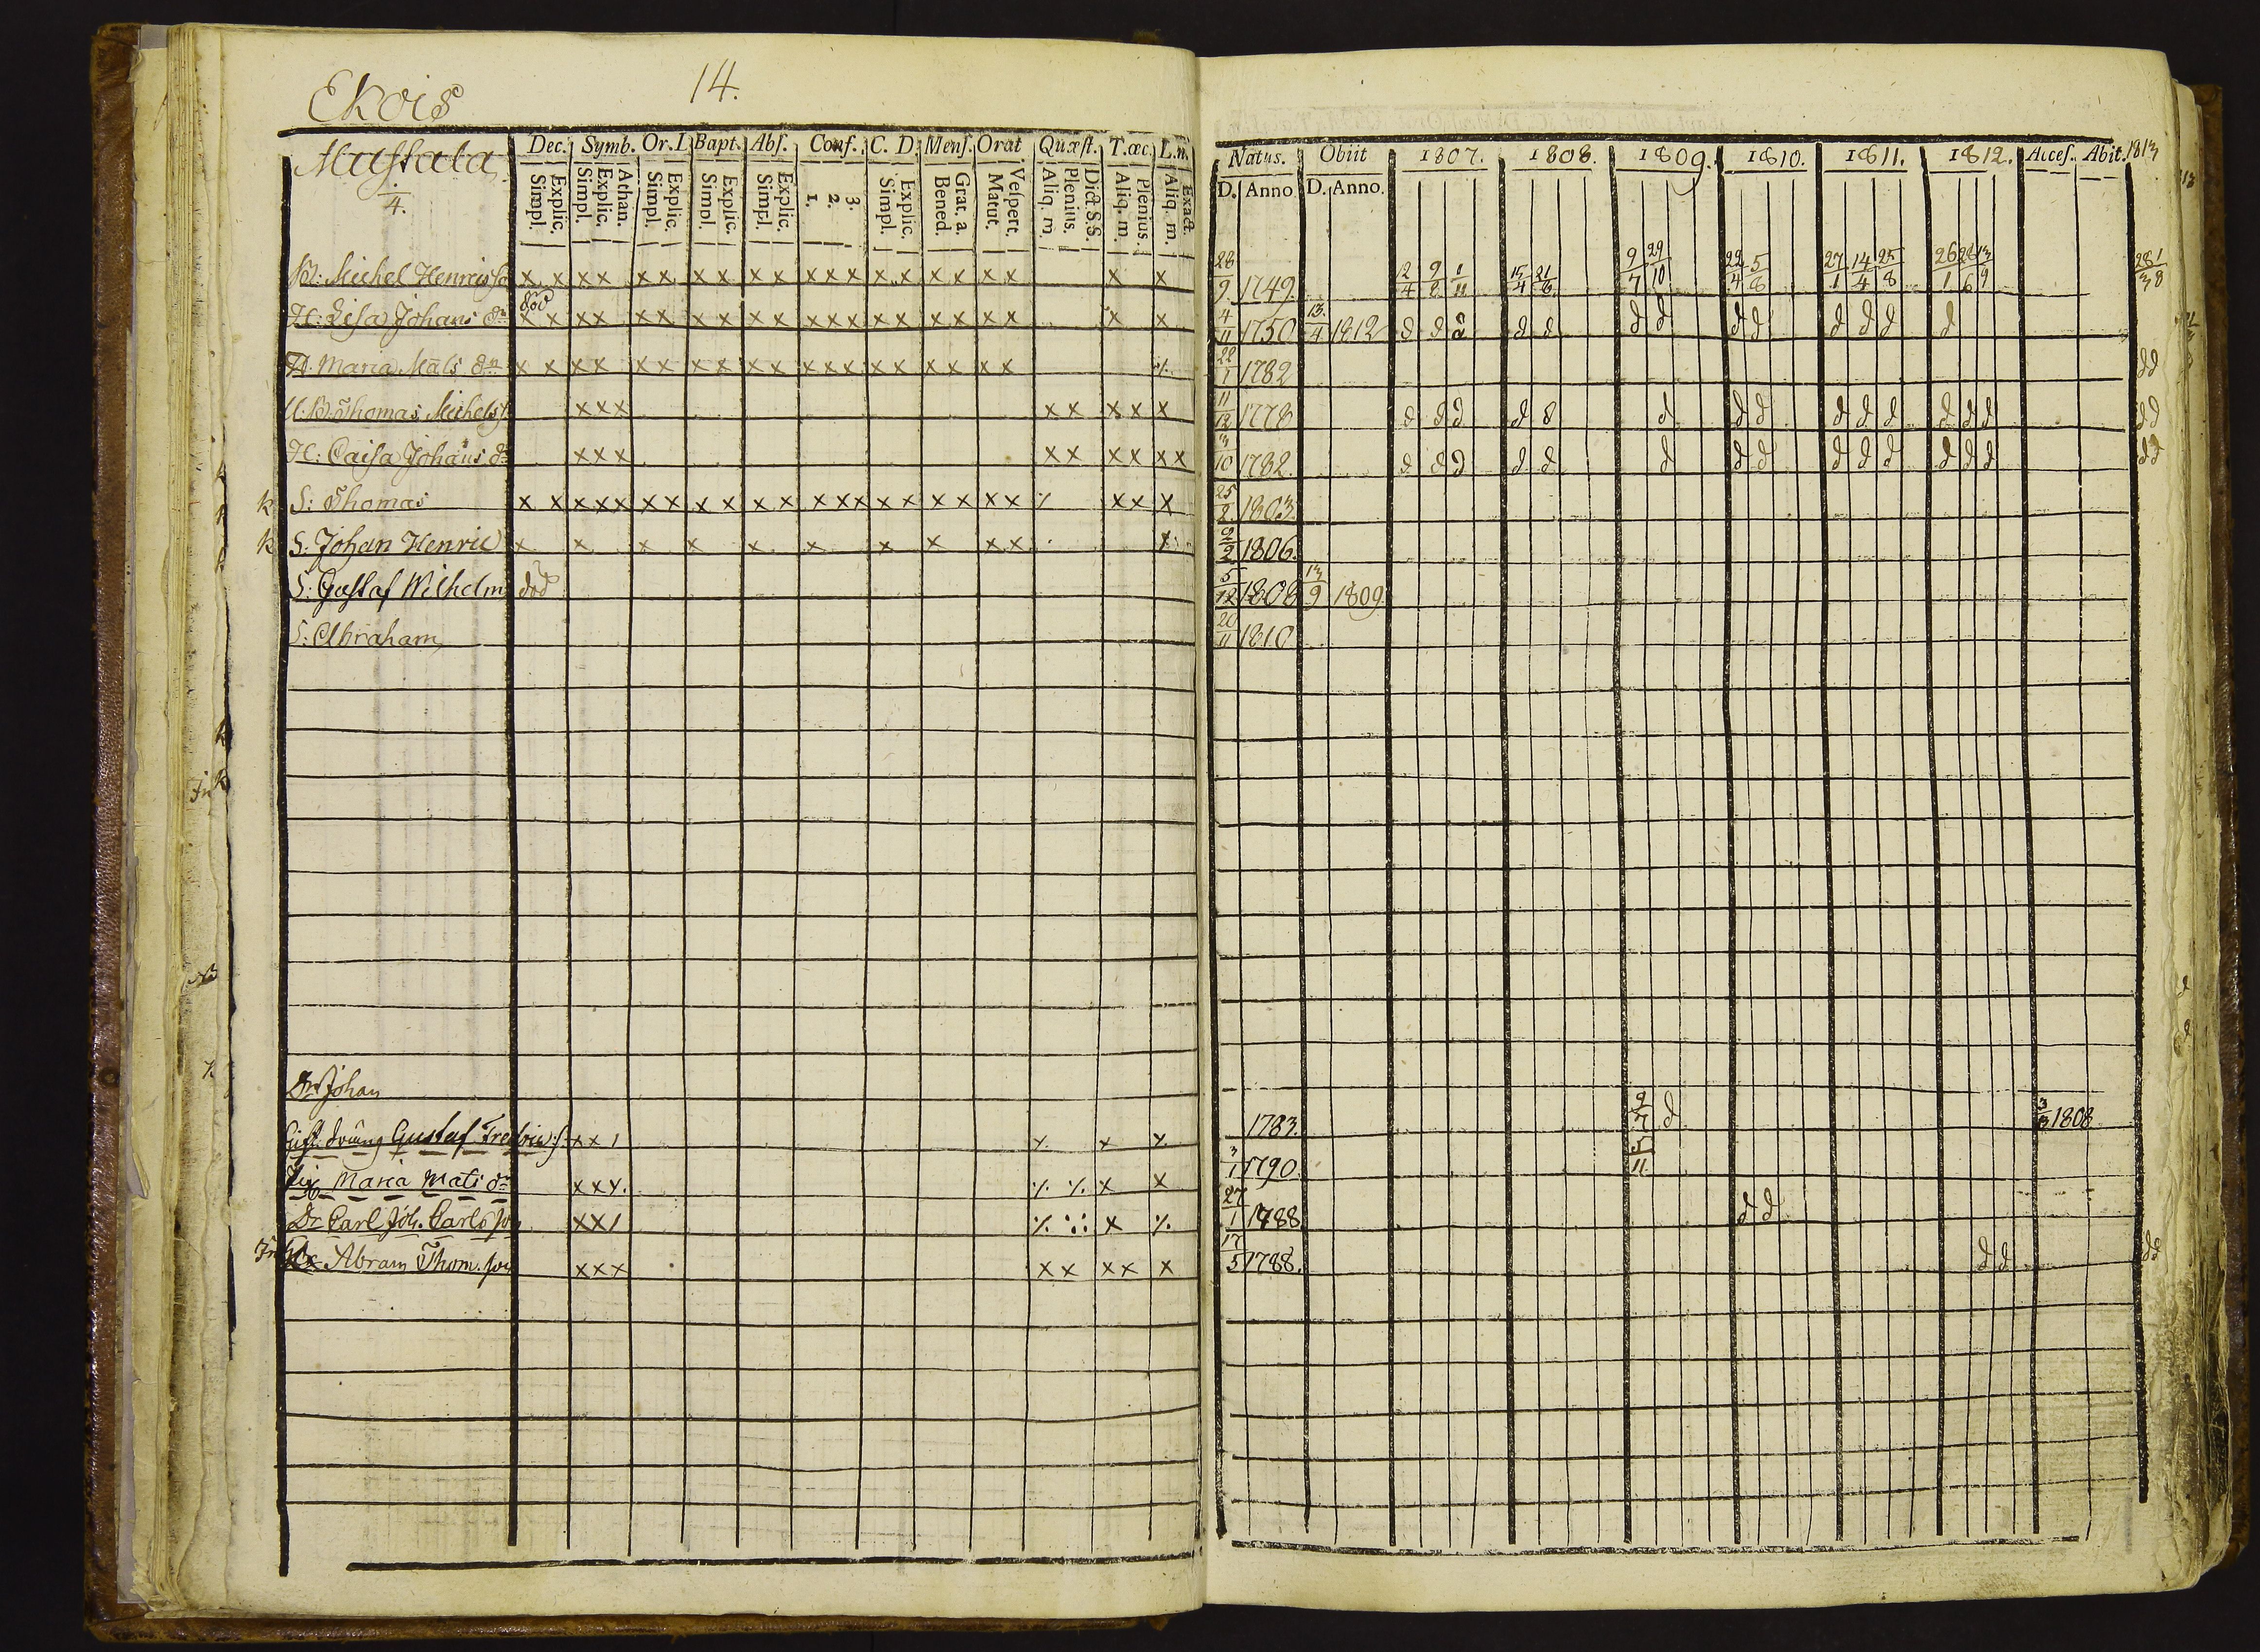 Ekois 14.
Mustala
4.
Dec. Symb. Or. I. Bapt. Abs. Conf. C. D. Mens. Orat Quæst. T. œc. L. n.
Simpl. Explic. Simpl. Explic. Athan. Simpl. Explic. Simpl. Explic. Simpl. Explic. 1. 2. 3. Simpl. Explic. Bened. Grat. a. Matut. Vespert. Aliq. m. Plenius. Dict S.S. Aliq. m. Plenius. Aliq. m. Exact.
Natus. Obiit 1807. 1808. 1809. 1810. 1811. 1812. Acces. Abit. 1813
D. Anno D. Anno.
B: Michel Henricss x x x x x x x x x x x x x x x x x x x x x x 28/9 1749. 12/4 9/8 1/11 15/4 21/6 9/7 29/10 22/4 5/6 27/1 14/4 25/8 26/1 28/6 13/9 28/3 1/8
död
H: Lisa Johans dr x x x x x x x x x x x x x x x x x x x x x 4/11 1750 13/4 1812 d d d d d d d d d d d d d
H. Maria Mats dr x x x x x x x x x x x x x x x x x x x ⁒ 22/1 1782 d d
U. B. Thomas Michelss x x x x x x x x 11/12 1778 d d d d d d d d d d d d d d d d
H: Caisa Johans dr x x x x x x x x x 3/10 1782. d d d d d d d d d d d d d d d d
k S: Thomas x x x x x x x x x x x x x x x x x x x x ⁒ x x x 25/2 1803
k S: Johan Henric x x x x x x x x x x 2/2 1806.
S: Gustaf Wilhelm död 5/12 1808 13/9 1809
S: Abraham 20/11 1810
Dr Johan
1783. 9/7 d 3/3 1808
Gift. dräng Gustaf Fredric s. x x ⁒ x ⁒ 3/1 1790. 5/11
Pig Maria Mats dr x x ⁒ ⁒ ⁒ x x
Dr Carl Joh. Carlsson x x ⁒ x ⁒ 27/1 1788 d d
Abram Thom. son x x x x x x x x 17/5 1788. d d d d